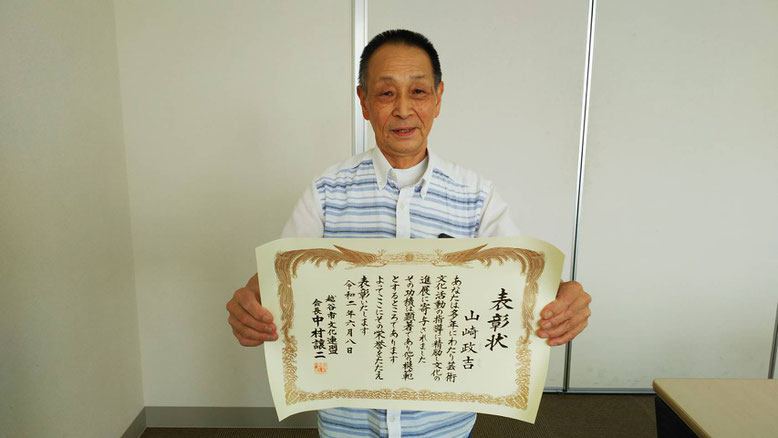 表彰状
山崎政吉
あなたは多年にわたり芸術
文化活動の指導に精励し文化の
進展に寄与されました
その功績は顕著であり他の模範
とするところであります
よってここにその栄誉をたたえ
表彰いたします
令和二年六月八日
越谷市文化連盟
会長中村譲二